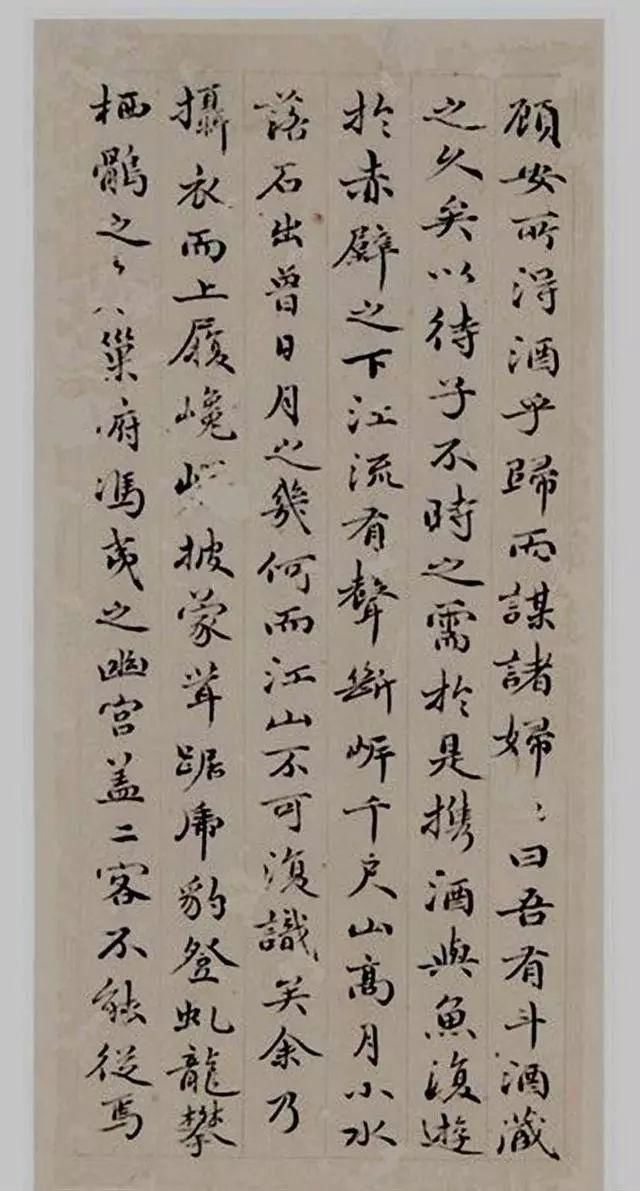 顧安所得酒乎歸而謀諸婦〻曰吾有斗酒藏
之久矣以待子不時之需於是携酒與魚復遊
於赤壁之下江流有聲斷岸千尺山高月小水
落石出曾日月之幾何而江山不可復識矣余乃
攝衣而上履巉披蒙茸踞虎豹登虬龍攀
栖鶻之巢府馮夷之幽宫盖二客不能從焉